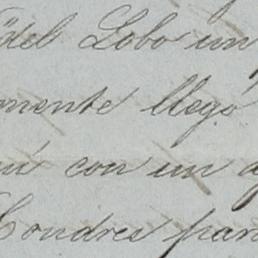 del Lobo un
mente llegó
con un
Londres para